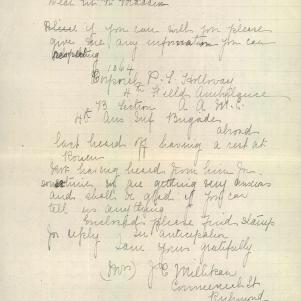 if you can will you please
give me any information you can
respecting
1364
Corporal P. L. Holloway
4th Field Ambulance
B Section A A M C
4th Aus Inf Brigade
abroad
last heard of having a rest at
Rouen
Not having heard from him for
sometime, we are getting very anxious
and shall be glad if you can
tell us anything
Enclosed please find stamp
for reply In anticipation
I am yours gratefully
(Mrs) J. E. Millikan
Commercial St
Richmond